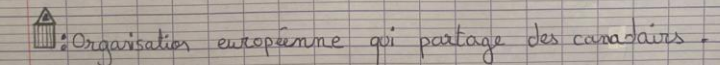 : Organisation européenne qui partage des canadairs.